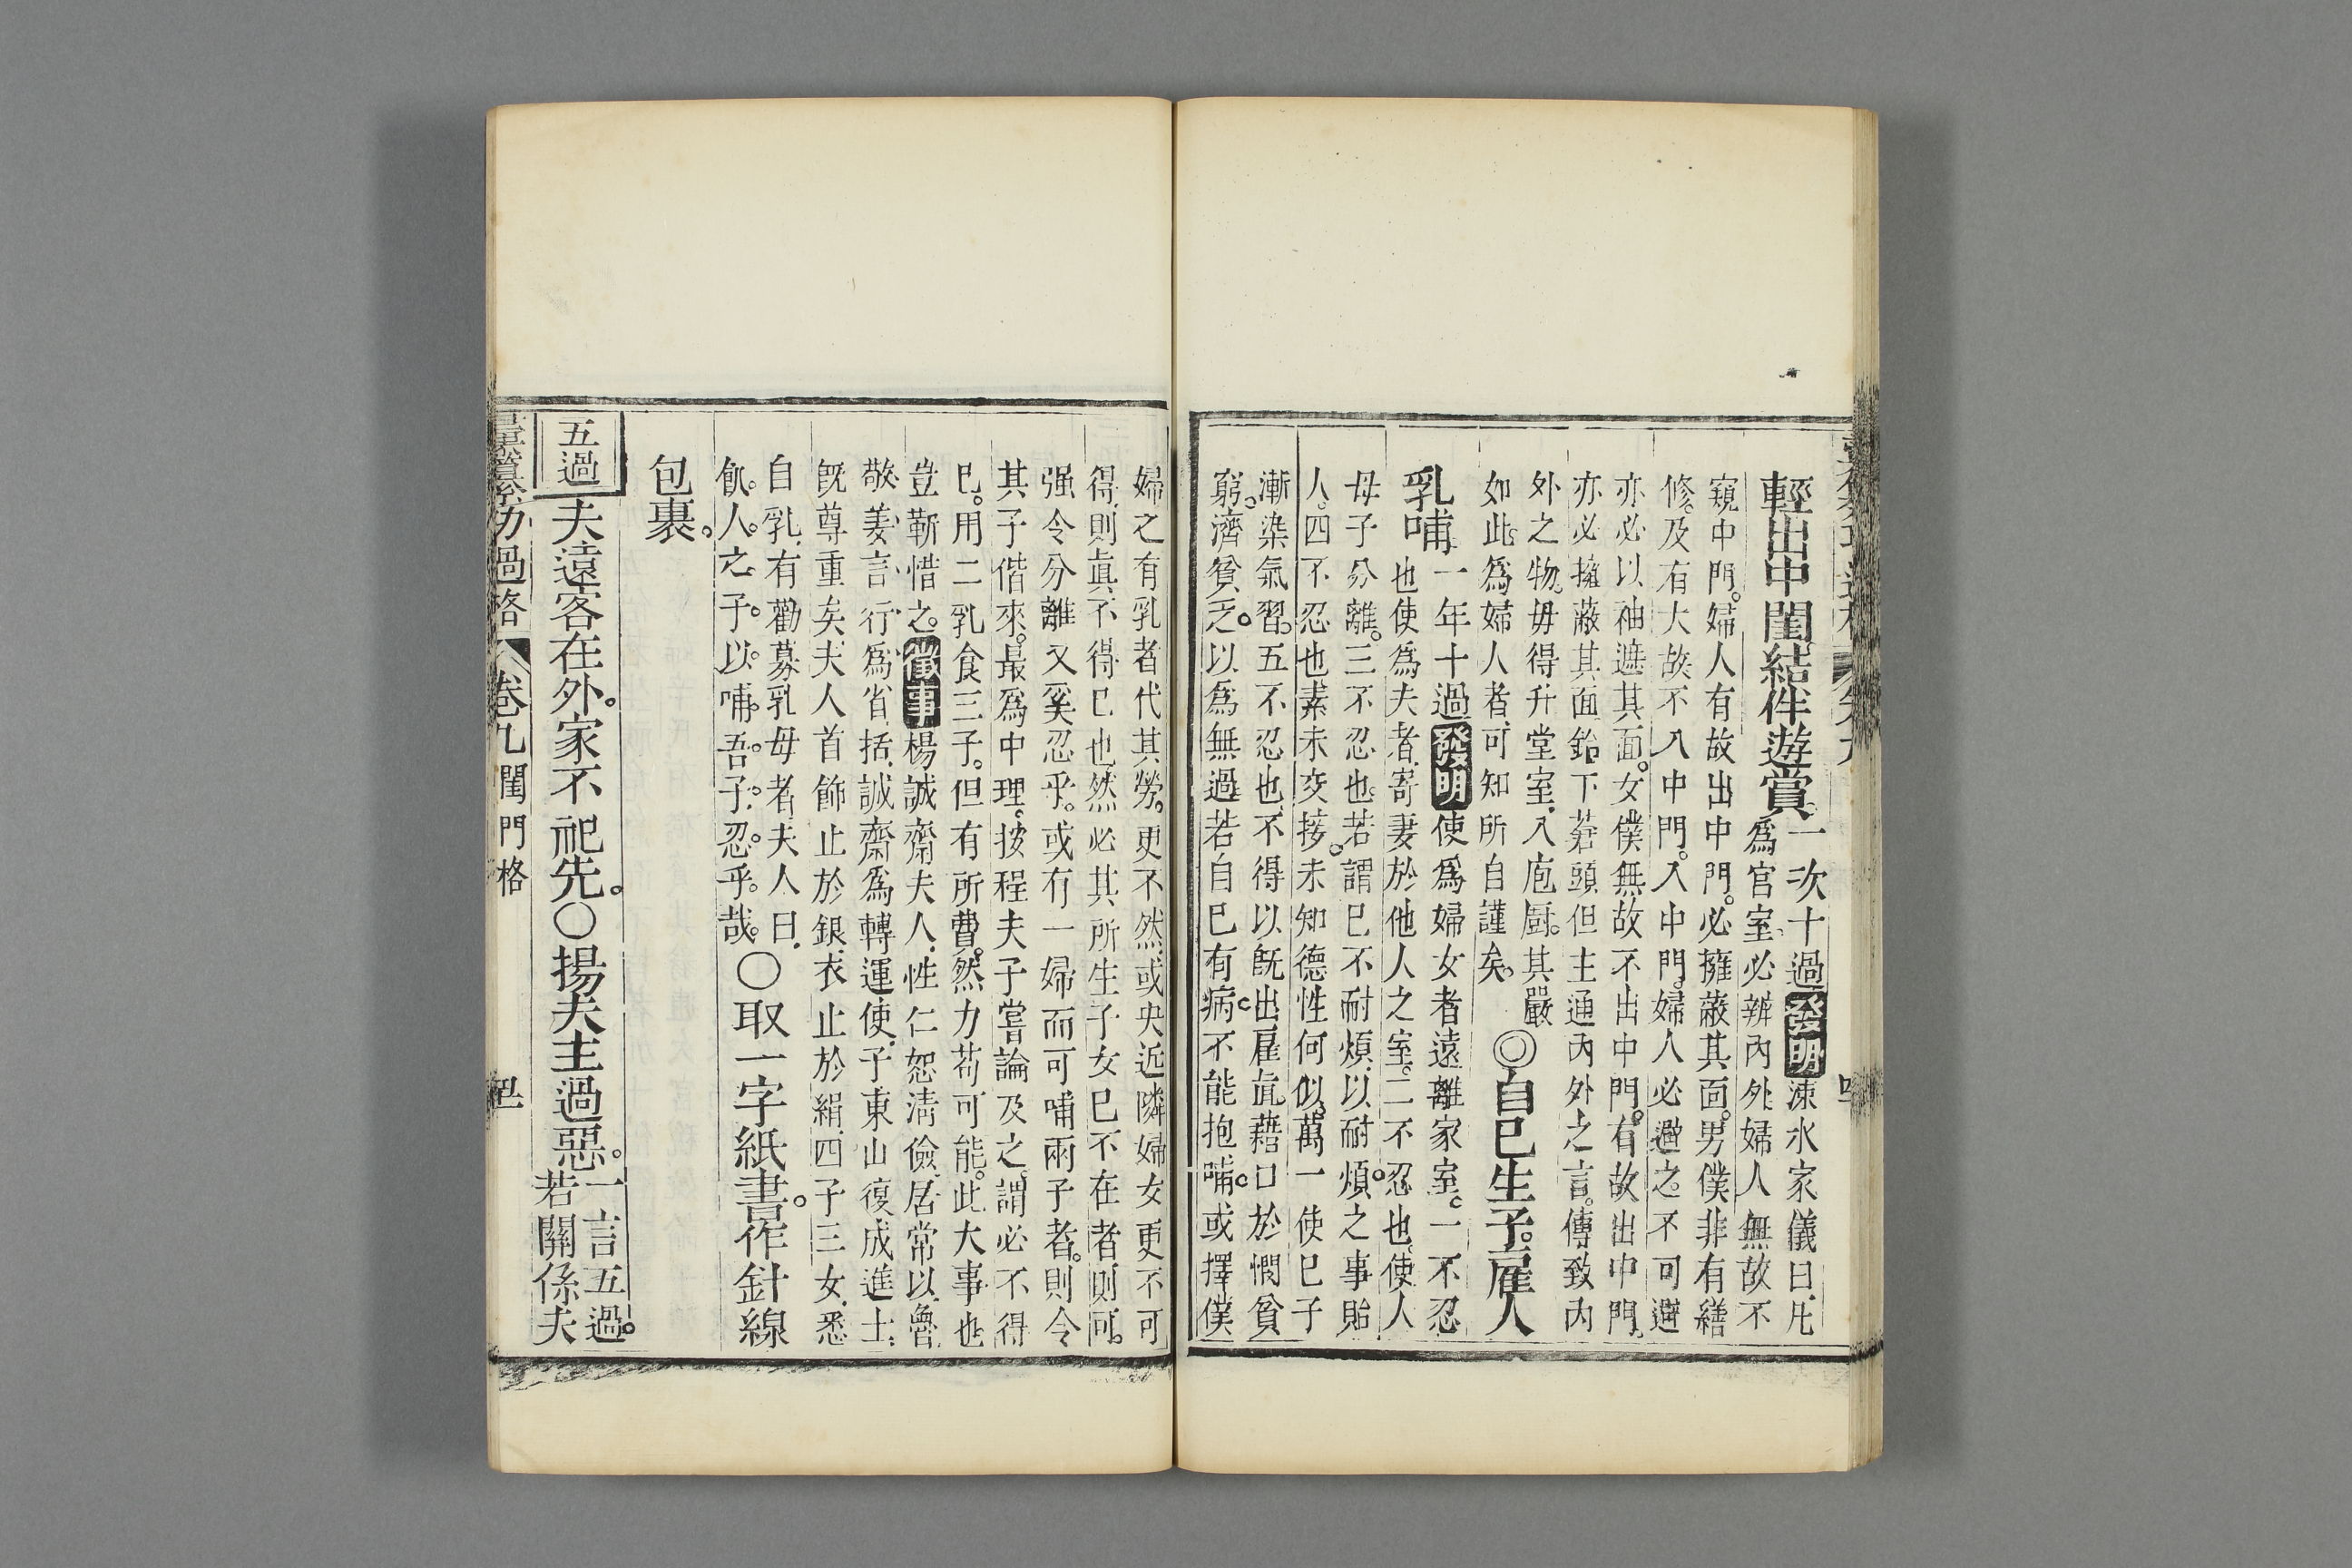 輕出中閨結伴遊賞一次十過發明涑水家儀曰凡
爲官室必辨內外婦人無故不
窺中門婦人有故出中門必擁蔽其面男僕非有繕
修及有大故不入中門入中門婦人必避之不可避
亦必以袖遮其面女僕無故不出中門有故出中門
亦必擁蔽其面鈴下蒼頭但主通內外之言傳致內
外之物毋得升堂室入庖厨其嚴
如此爲婦人者可知所自謹矣◎自己生子雇人
乳哺一年十過發明使爲婦女者遠離家室一不忍
也使爲夫者寄妻於他人之室二不忍也使人
母子分離三不忍也若謂己不耐煩以耐煩之事貽
人四不忍也素未交接未知德性何似萬一使己子
漸染氣習五不忍也不得以既出雇直藉口於憫貧
窮濟貧乏以爲無過若自己有病不能抱哺或擇僕
婦之有乳者代其勞更不然或央近隣婦女更不可
得則眞不得已也然必其所生子女已不在者則可
强令分離又奚忍乎或有一婦而可哺兩子者則令
其子偕來最爲中理按程夫子嘗論及之謂必不得
已用二乳食三子但有所費然力苟可能此大事也
豈靳惜之徵事楊誠齋夫人性仁恕淸儉居常以魯
敬姜言行爲省括誠齋爲轉運使子東山復成進士
旣尊重矣夫人首飾止於銀衣止於絹四子三女悉
自乳有勸募乳母者夫人曰
飢人之子以哺吾子忍乎哉〇取一字紙書作針線
包裹
五過
夫遠客在外家不祀先〇揚夫主過惡一言五過
若關係夫
功過格 卷九閨門格